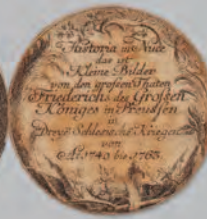 Historia in Nuce
das ist
Kleine Bilder
von den großen Thaten
Friederichs des Großen
Königes in Preußen
in
Dreyē Schlesische Kriegen
von
1740 bis 1763